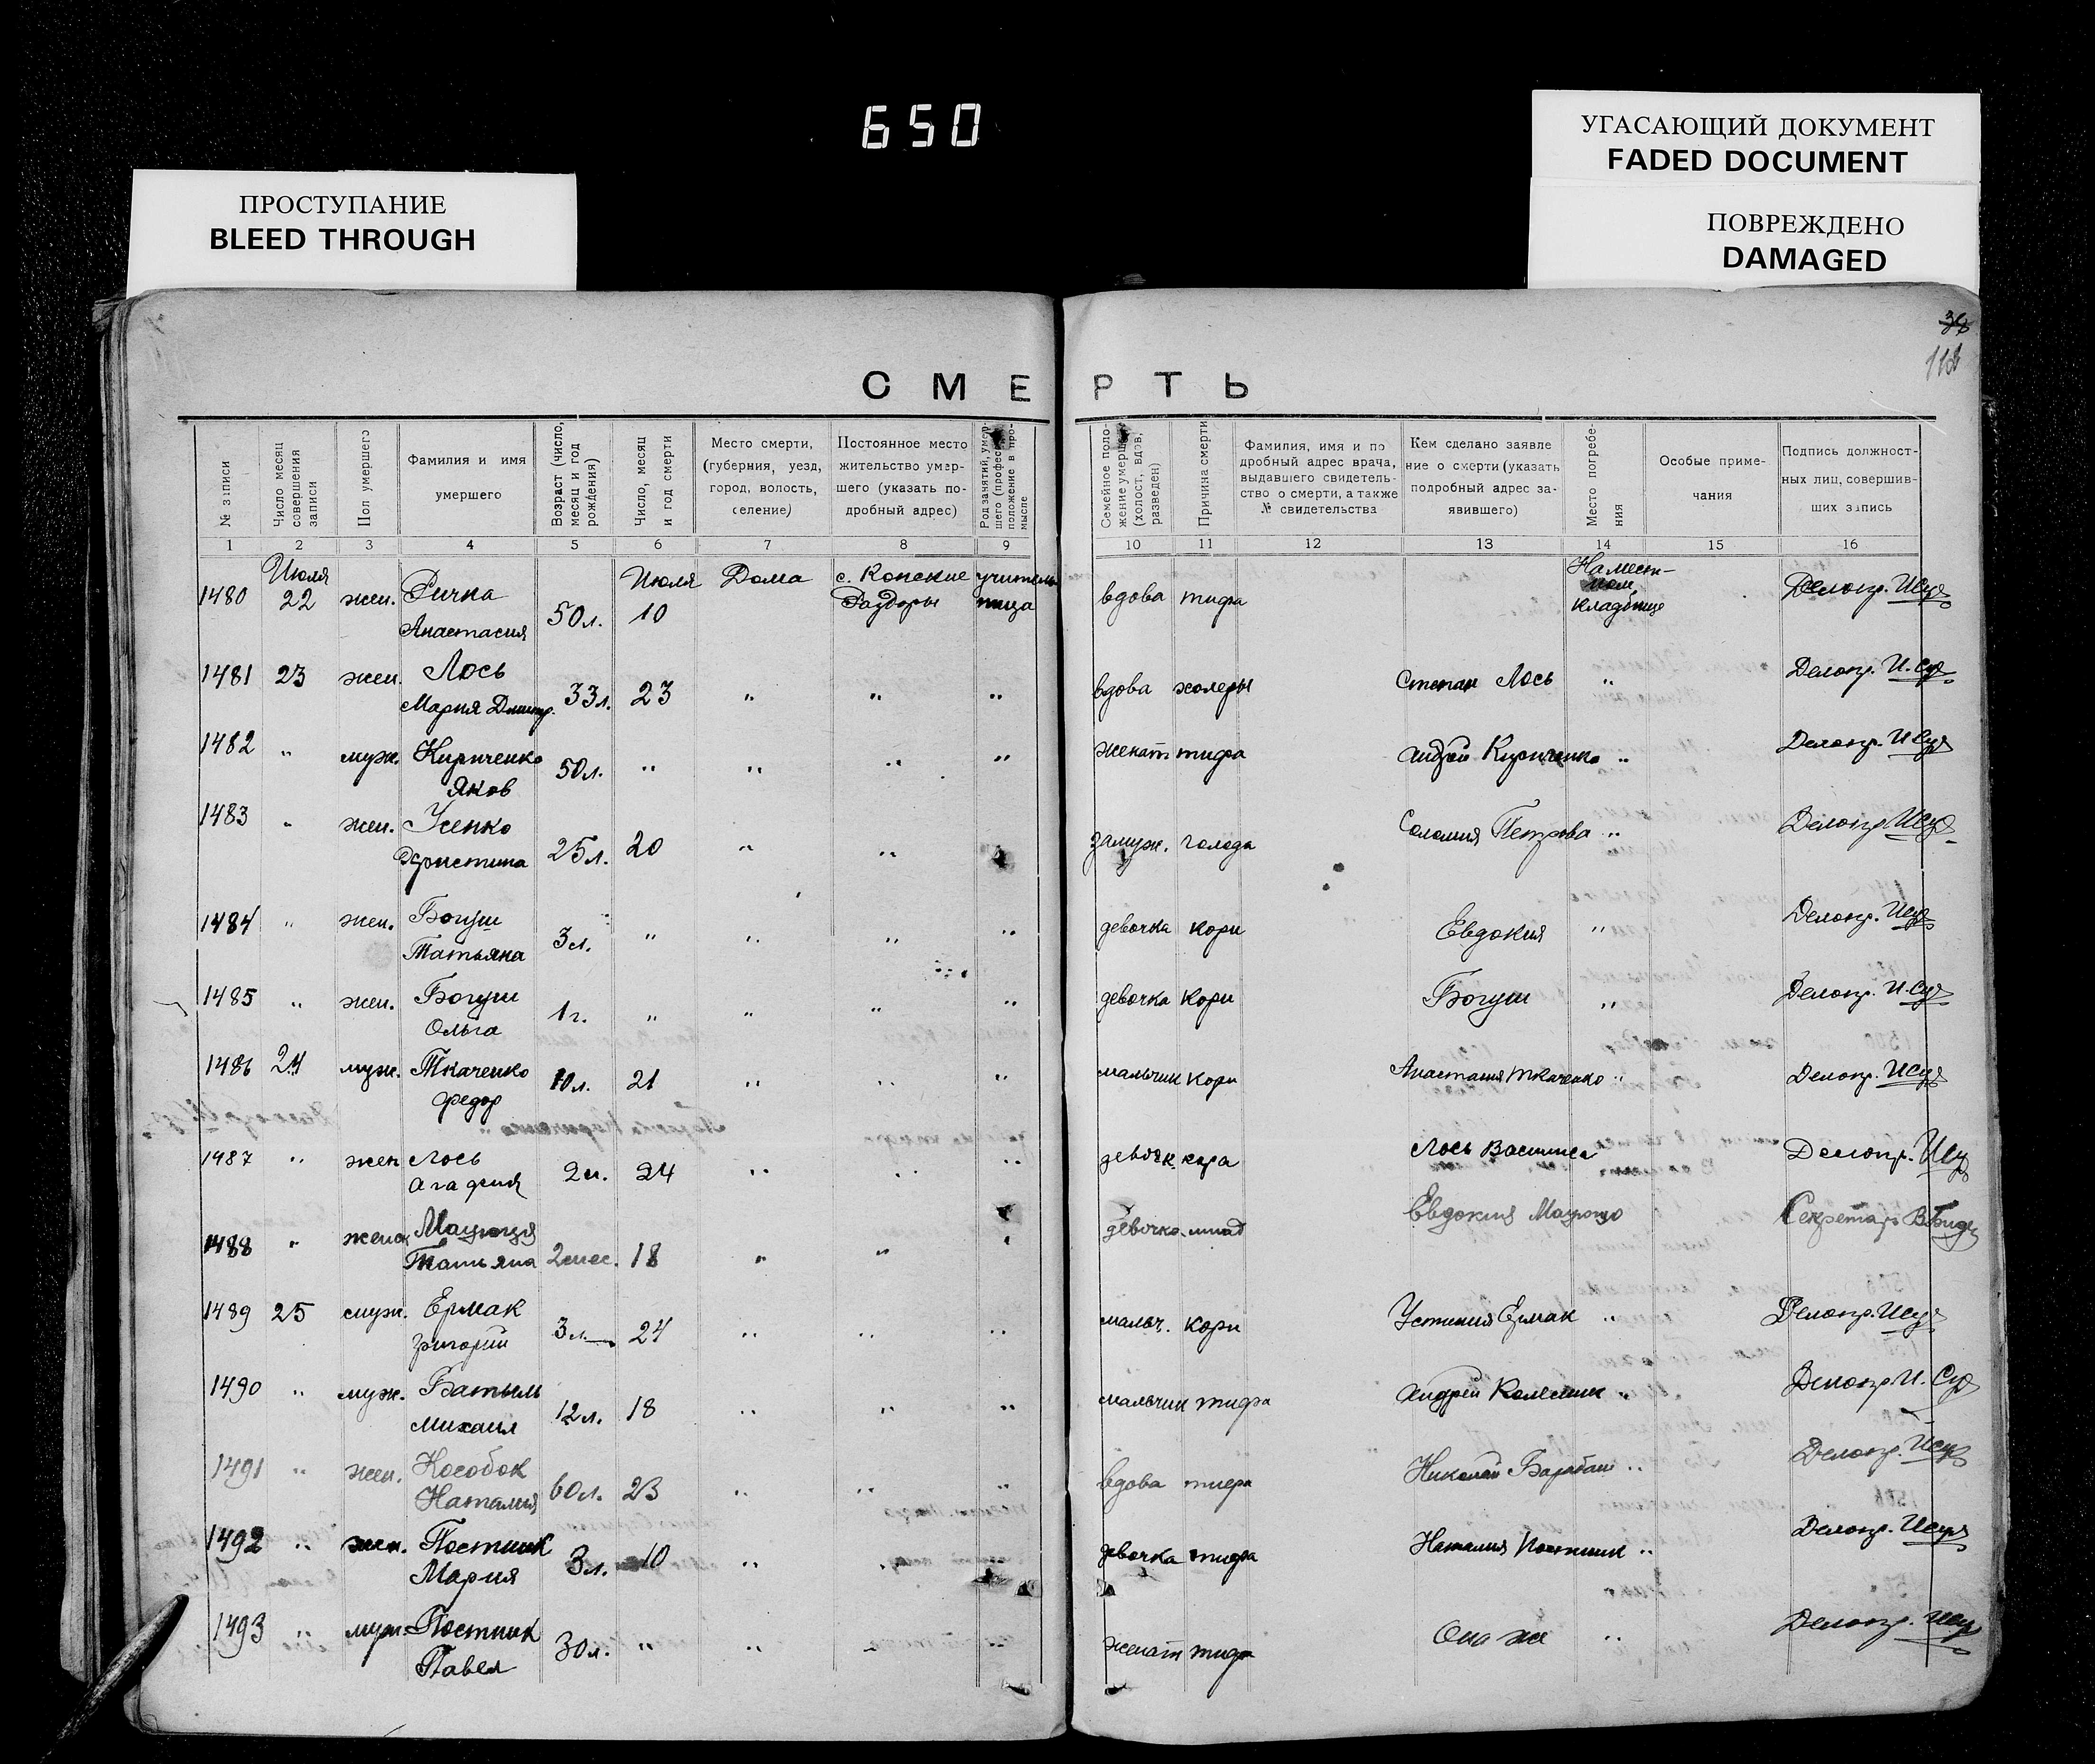 650
ПРОСТУПАНИЕ
BLEED THROUGH
УГАСАЮЩИЙ ДОКУМЕНТ
FADED DOCUMENT
ПОВРЕЖДЕНО
DAMAGED
38
СМЕРТЬ
№ записи
Число месяц совершения записи
Пол умершего
Фамилия и имя умершего
Возраст (число, месяц и год рождения)
Число, месяц и год смерти
Место смерти, (губерния, уезд, город, волость, селение)
Постоянное место жительство умершего (указать подробный адрес)
Род занятий, умершего (професс. положение в промысле
Семейное положение умершего (холост, вдов, разведен)
Причина смерти
Фамилия, имя и подробный адрес врача, выдавшего свидетельство о смерти, а также № свидетельства
Кем сделано заявление о смерти (указать подробный адрес заявившего)
Место погребения
Особые примечания
Подпись должностных лиц, совершивших запись
1 2 3 4 5 6 7 8 9 10 11 12 13 14 15 16
1480 Июля 22 жен. Ричка Анастасия 50 л. Июля 10 Дома с. Конские Раздоры учительница вдова тифа На местном кладбище Делопр.
1481 23 жен. Лось Мария Дмитр. 33 л. 23 " " " вдова холеры Степан Лось " Делопр.
1482 " муж. Кириченко Яков 50 л. " " " " женат тифа Андрей Кириченко " Делопр.
1483 " жен. Усенко Христина 25 л. 20 " " замуж. голода Соломия Петрова " Делопр.
1484 " жен. Богуш Татьяна 3 л. " " " " девочка кори Евдокия " Делопр.
1485 " жен. Богуш Ольга 1 г. " " " " девочка кори Богуш " Делопр.
1486 24 муж. Ткаченко Федор 10 л. 21 " " " мальчик кори Анастасия Ткаченко " Делопр.
1487 " жен Лось Агафия 24 " " " девочк. кора Лось Василиса Делопр.
1488 " женск Татьяна 2 мес. 18 " " " девочка млад Евдокия Секретарь
1489 25 муж. Ермак Григорий 3 л. 24 " " " мальч. кори Устиния Ермак " Делопр.
1490 " муж. Михаил 12 л. 18 " " " мальчик тифа Андрей Колесник " Делопр.
1491 " жен. Кособок Наталия 60 л. 23 " " " вдова тифа Николай Барабаш " Делопр.
1492 " жен. Постник Мария 3 л. 10 " " девочка тифа Наталия Постник " Делопр.
1493 " муж. Постник Павел 30 л. " " женат тифа Она же " Делопр.